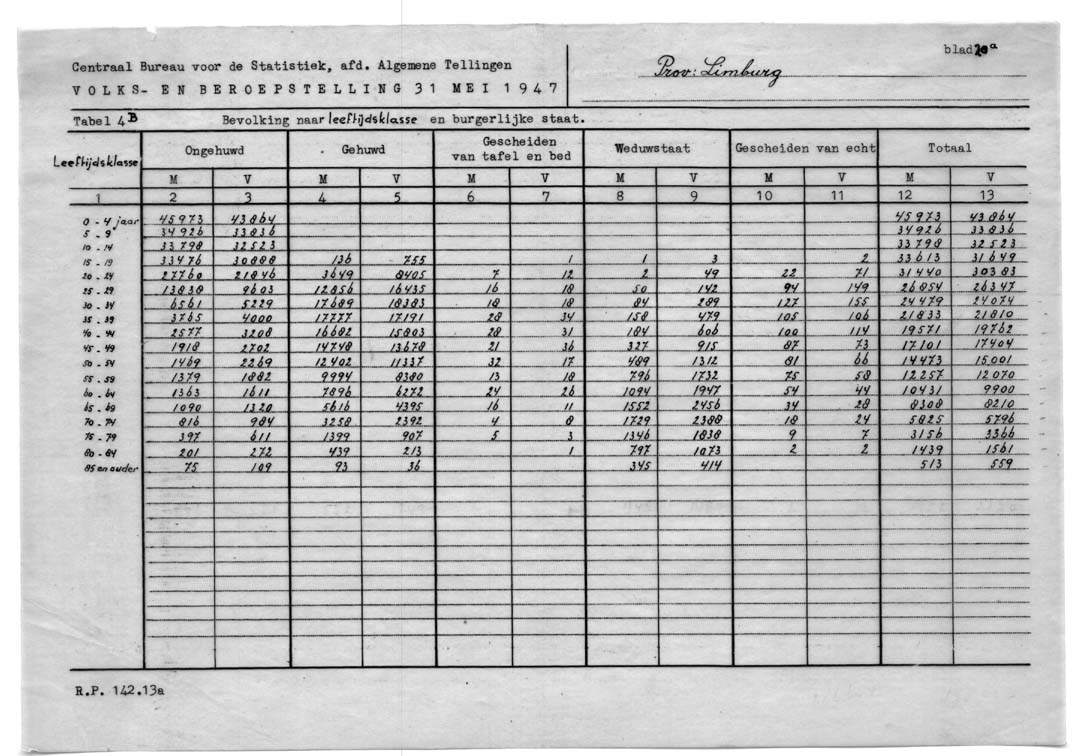 blad 20a
Centraal Bureau voor de Statistiek, afd. Algemene Tellingen
Prov: Limburg
VOLKS- EN BEROEPSTELLING 31 MEI 1947
Tabel 4B Bevolking naar leeftijdsklasse en burgerlijke staat.
Leeftijdsklasse Ongehuwd Gehuwd Gescheiden van tafel en bed Weduwstaat Gescheiden van echt Totaal
M V M V M V M V M V M V
1 2 3 4 5 6 7 8 9 10 11 12 13
0 - 4 jaar 45973 43864 45973 43864
5 - 9 34926 33836 34926 33836
10 - 14 33798 32523 33798 32523
15 - 19 33476 30888 136 755 1 1 3 2 33613 31649
20 - 24 27760 21846 3649 8405 7 12 2 49 22 71 31440 30383
25 - 29 13838 9603 12856 16435 16 18 50 142 94 149 26854 26347
30 - 34 6561 5229 17689 18383 18 18 84 289 127 155 24479 24074
35 - 39 3765 4000 17777 17191 28 34 158 479 105 106 21833 21810
40 - 44 2577 3208 16682 15803 28 31 184 606 100 114 19571 19762
45 - 49 1918 2702 14748 13678 21 36 327 915 87 73 17101 17404
50 - 54 1469 2269 12402 11337 32 17 489 1312 81 66 14473 15001
55 - 59 1379 1882 9994 8380 13 18 796 1732 75 58 12257 12070
60 - 64 1363 1611 7896 6272 24 26 1094 1947 54 44 10431 9900
65 - 69 1090 1320 5616 4395 16 11 1552 2456 34 28 8308 8210
70 - 74 816 984 3258 2392 4 8 1729 2388 18 24 5825 5796
75 - 79 397 611 1399 907 5 3 1346 1838 9 7 3156 3366
80 - 84 201 272 439 213 1 797 1073 2 2 1439 1561
85 en ouder 75 109 93 36 345 414 513 559
R.P. 142.13a